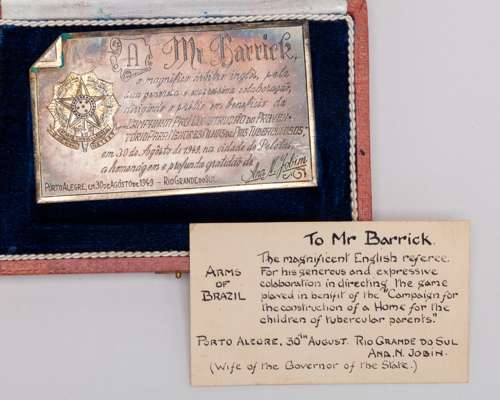 A Mr Barrick,
o magnifico árbitro inglês, pela
sua generosa e expressiva colaboração,
dirigindo a peleja em beneficio da
"CAMPANHA PRÓ CONSTRUÇÃO DO PREVEN-
TORIO PARA DESCENDENTES DE PAIS TUBERCULOSOS",
em 30 de Agosto de 1949, na cidade de Pelotas,
a homenagem e profunda gratidão de
PORTO ALEGRE, EM 30 DE AGÔSTO DE 1949 - RIO GRANDE DO SUL
Ana N. Jobim
To Mr Barrick.
ARMS
OF
BRAZIL
The magnificent English referee.
For his generous and expressive
colaboration in directing the game
played in benifit of the "Campaign for
the construction of a Home for the
children of tubercular parents."
PORTO ALEGRE, 30TH AUGUST. RIO GRANDE DO SUL
ANA. N. JOBIN.
(Wife of the Governor of the State.)